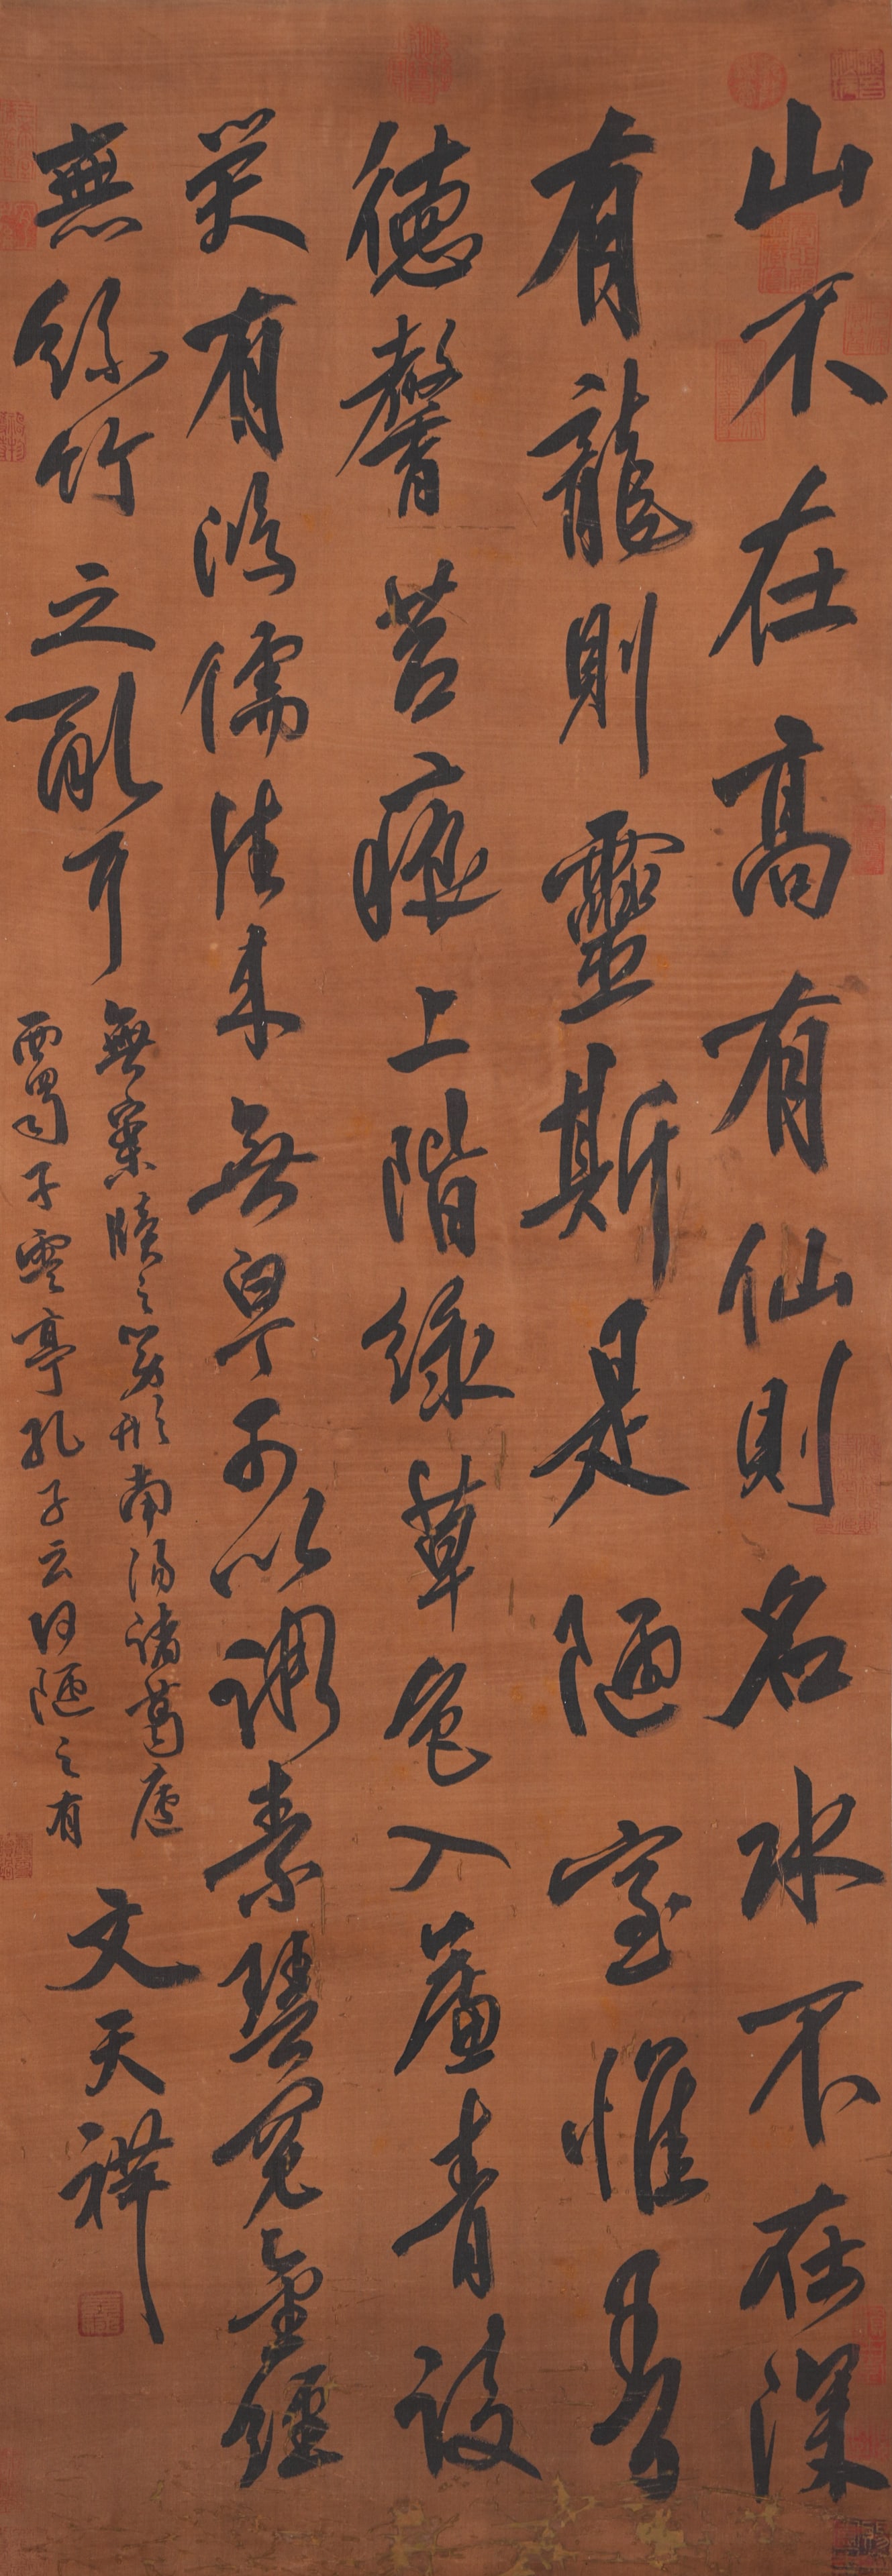 山不在高有仙則名水不在深
有龍則靈斯是陋室惟吾
德馨苔痕上階綠草色入簾青談
笑有鴻儒往來無白丁可以調素琴閱金經
無絲竹之亂耳
無案牘之勞形南陽諸葛廬
西蜀子雲亭孔子云何陋之有
文天祥